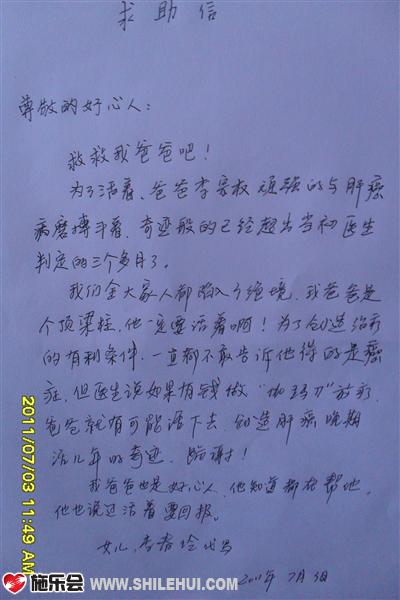 求助信
尊敬的好心人：
救救我爸爸吧！
为了活着、爸爸李家权顽强的与肝癌
病磨搏斗着、奇迹般的已经超出当初医生
判定的三个多月了。
我们全大家人都陷入了绝境、我爸爸是
个顶梁柱、他一定要活着啊！为了创造治疗
的有利条件、一直都不敢告诉他得的是癌
症、但医生说如果有钱做“伽玛刀”治疗、
爸爸就有可能活下去、创造肝癌晚期
活几年的奇迹、跪谢！
我爸爸也是好心人、他知道都在帮他、
他也说过活着要回报。
女儿、李春
2011年7月3日
2011/07/03 11:49 AM
施乐会
WWW.SHILEHUI.COM